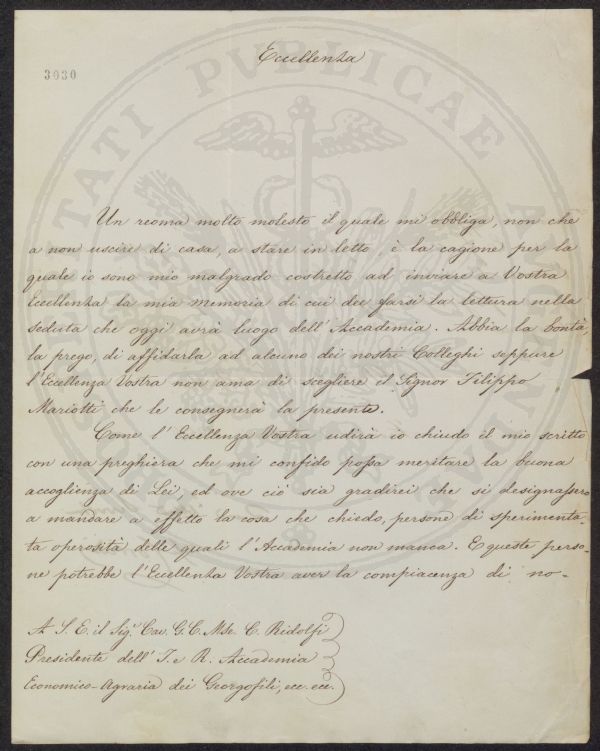 Eccellenza
3030
Un reoma molto molesto il quale mi obbliga, non che
a non uscire di casa, a stare in letto, è la cagione per la
quale io sono mio malgrado costretto ad inviare a Vostra
Eccellenza la mia Memoria di cui dee farsi la lettura nella
seduta che oggi avrà luogo dell'Accademia. Abbia la bontà,
la prego, di affidarla ad alcuno dei nostri Colleghi seppure
l'Eccellenza Vostra non ama di scegliere il Signor Filippo
Mariotti che le consegnerà la presente.
Come l'Eccellenza Vostra udirà io chiudo il mio scritto
con una preghiera che mi confido possa meritare la buona
accoglienza di Lei, ed ove ciò sia gradirei che si designassero
a mandare a effetto la cosa che chiedo, persone di sperimenta-
ta operosità delle quali l'Accademia non manca. E queste perso-
ne potrebbe l'Eccellenza Vostra aver la compiacenza di no-
A S. E. il Sig.r Cav. G. C. Mse. C. Ridolfi
Presidente dell'I. e R. Accademia
Economico-Agraria dei Georgofili, ecc. ecc.